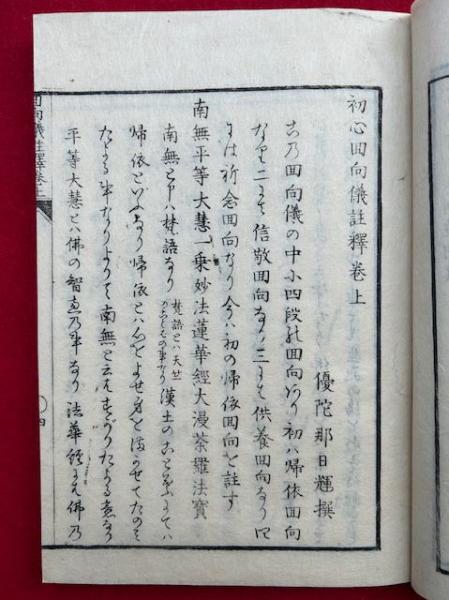 初心回向儀註釋卷上
優陀那日輝撰
古乃回向儀の中小四段の回向あり初ハ帰依回向
なり二にハ信敬回向なり三にハ供養回向なり四
にハ祈念回向なり今ハ初の帰依回向を註す
南無平等大慧一乗妙法蓮華經大漫荼羅法寳
南無とハ梵語なり
梵語とハ天竺
のことばの事なり
漢土のことばにてハ
帰依といふなり帰依とハ心をよせ身をまかせてたのミ
たてまつる事なりよりて南無と云ハすがりたてまつる意なり
平等大慧とハ佛の智恵乃事なり法華經にハ佛乃
回向儀註釋卷上
四